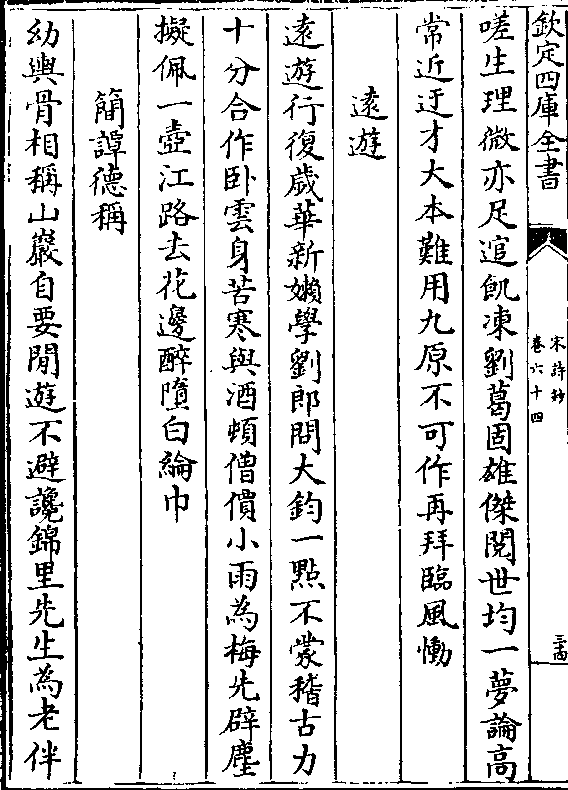 欽定四庫全書
宋詩鈔
卷六十四
三四
嗟生理微亦足逭飢凍劉葛固雄傑閱世均一夢論高
常近迂才大本難用九原不可作再拜臨風慟
遠遊
遠遊行復歲華新嬾學劉郎問大鈞一點不蒙稽古力
十分合作卧雲身苦寒與酒頓僧價小雨為梅先辟塵
擬佩一壺江路去花邊醉墮白綸巾
簡譚德稱
幼輿骨相稱山巖自要閒遊不避讒錦里先生為老伴